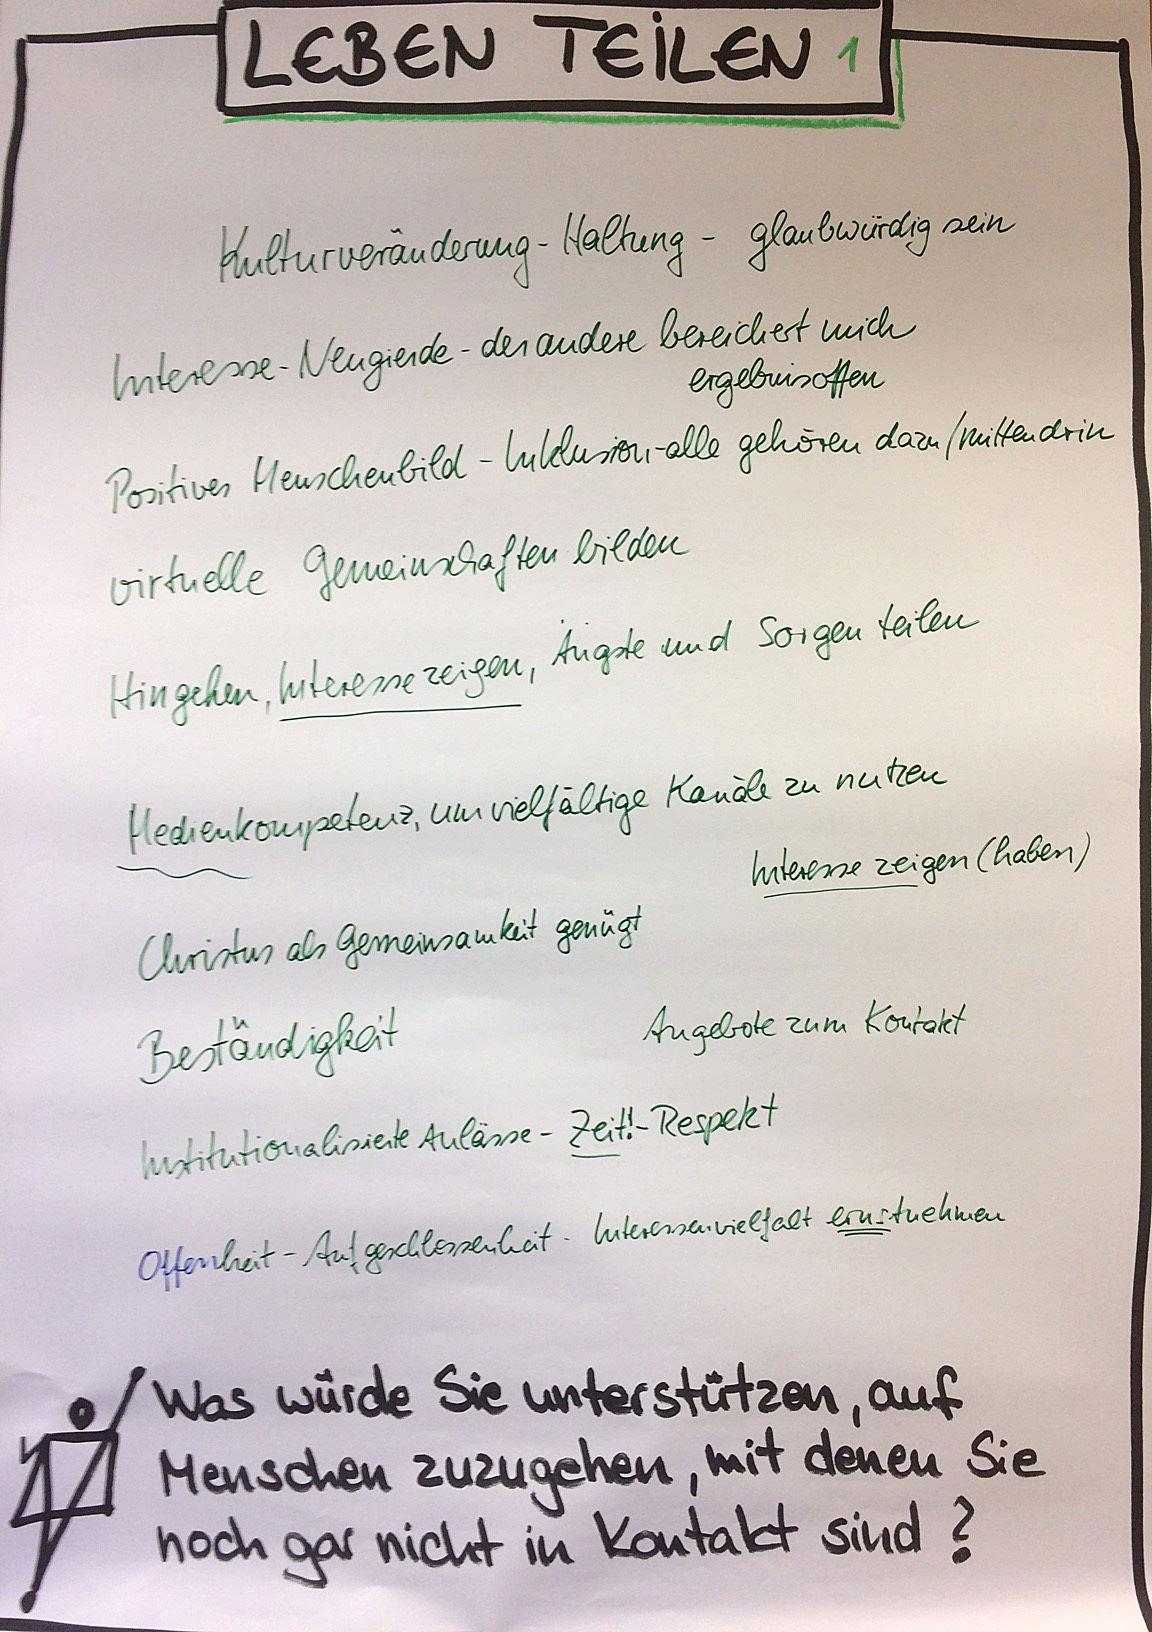 LEBEN TEILEN 1
Kulturveränderung - Haltung - glaubwürdig sein
Interesse - Neugierde - der andere bereichert mich
ergebnisoffen
Positives Menschenbild - Inklusion - alle gehören dazu / mittendrin
virtuelle Gemeinschaften bilden
Hingehen, Interesse zeigen, Ängste und Sorgen teilen
Medienkompetenz, um vielfältige Kanäle zu nutzen
Interesse zeigen (haben)
Christus als Gemeinsamkeit genügt
Beständigkeit Angebote zum Kontakt
Institutionalisierte Anlässe - Zeit! - Respekt
Offenheit - Aufgeschlossenheit - Interessenvielfalt ernstnehmen
Was würde Sie unterstützen, auf
Menschen zuzugehen, mit denen Sie
noch gar nicht in Kontakt sind ?